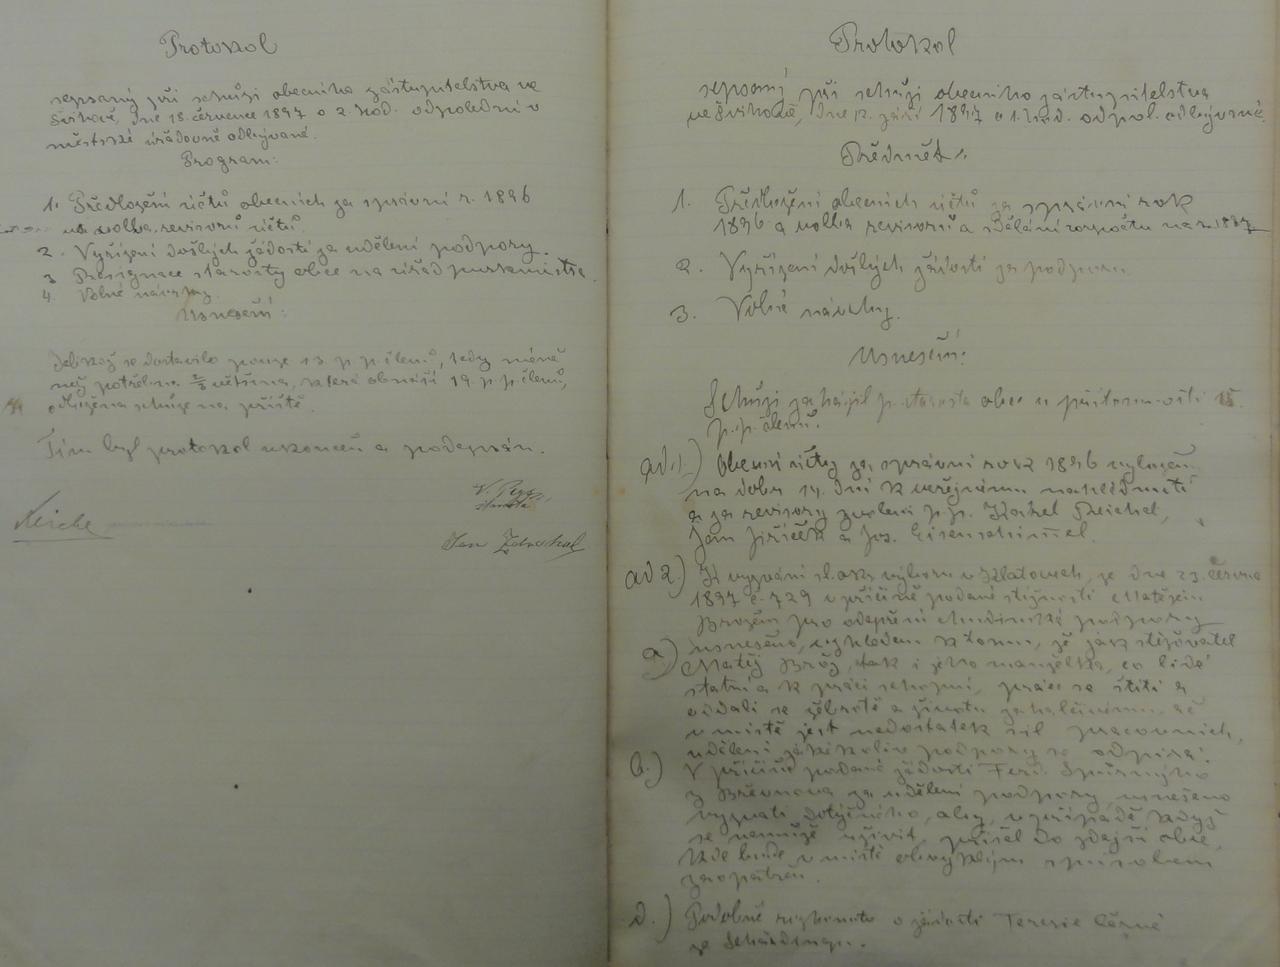 Protokol
sepsaný při schůzi obecního zastupitelstva ve
Švihově, dne 18. července 1897 o 2. hod. odpolední v
městské úřadovně odbývané.
Program:
1. Předložení účtů obecních za správní r. 1896
na volba revisorů účtů.
2. Vyřízení došlých žádostí za udělení podpory.
3 Resignace starosty obce na úřad purkmistra.
4. Volné návrhy.
Usnesení:
Jelikož se dostavilo pouze 13 p. p. členů, tedy méně
než potřebná 2/3 většina, která obnáší 19. p. p. členů,
odložena schůze na příště.
Tím byl protokol ukončen a podepsán.
starosta
Jan
Protokol
sepsaný při schůzi obecního zastupitelstva
ve Švihově, dne 12. září 1897 o 1. hod. odpol. odbývané.
Předmět:
1. Předložení obecních účtů za správní rok
1896 a volba revisorů a sdělání rozpočtu na r. 1897
2. Vyřízení došlých žádostí za podporu.
3. Volné návrhy.
Usnesení:
Schůzi zahájil p. starosta obce u přítomnosti 15.
p. p. členů.
ad 1.) Obecní účty za správní rok 1896 vyloženy
na dobu 14. dní k veřejnému nahlédnutí
a za revisory zvoleni p. p. Karel Reichel,
Jan Jiřiček a Jos. Eisenschimel.
ad 2.) K vyzvání sl. okr. výboru v Klatovech, ze dne 23. června
1897 č. 729 v příčině podané stížnosti Matějem
Brožem pro odepření chudinské podpory
a) usneseno, vzhledem k tomu, že jak stěžovatel
Matěj Brož, tak i jeho manželka, co lidé
statní a k práci schopní, práce se štítí a
oddali se žebrotě a životu zahálčivému, ač
v místě jest nedostatek sil pracovních,
udělení jakékoliv podpory se odpírá.
b.) V příčině podané žádosti Ferd.
z Břevnova za udělení podpory, usneseno
vyzvati dotyčného, aby, v případě když
se nemůže uživit, přišel do zdejší obce,
kde bude v místě obvyklým spůsobem
zaopatřen.
d.) Podobně rozhodnuto o žádosti Terezie Černé
ze